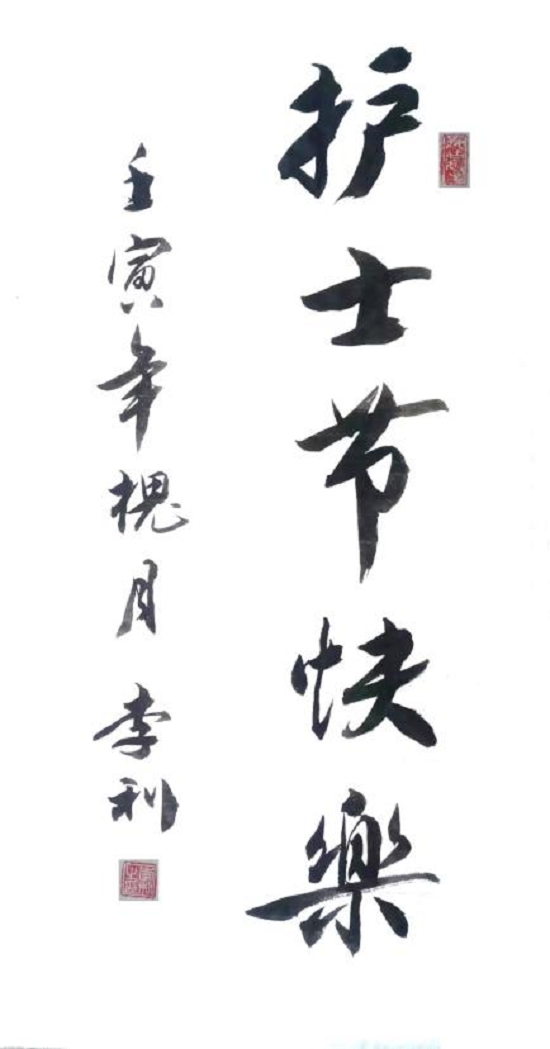 护士节快樂
壬寅年槐月 李利